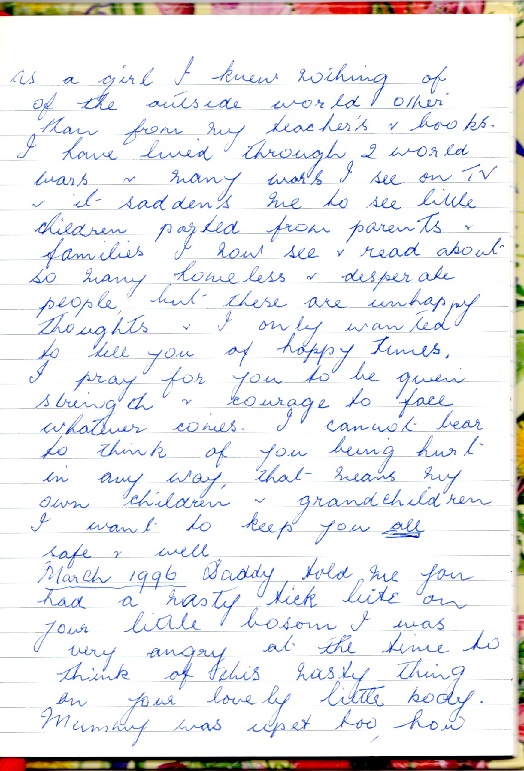 as a girl I knew nothing of
of the outside world other
than from my teacher's & books.
I have lived through 2 world
wars & many wars I see on TV
& it saddens me to see little
children parted from parents &
families I now see & read about
so many homeless & desperate
people, but these are unhappy
thoughts & I only wanted
to tell you of happy times.
I pray for you to be given
strength & courage to face
whatever comes. I cannot bear
to think of you being hurt
in any way, that means my
own children & grandchildren
I want to keep you all
safe & well.
March 1996 Daddy told me you
had a nasty tick bite on
your little bosom I was
very angry at the time to
think of this nasty thing
on your lovely little body.
Mummy was upset too, how